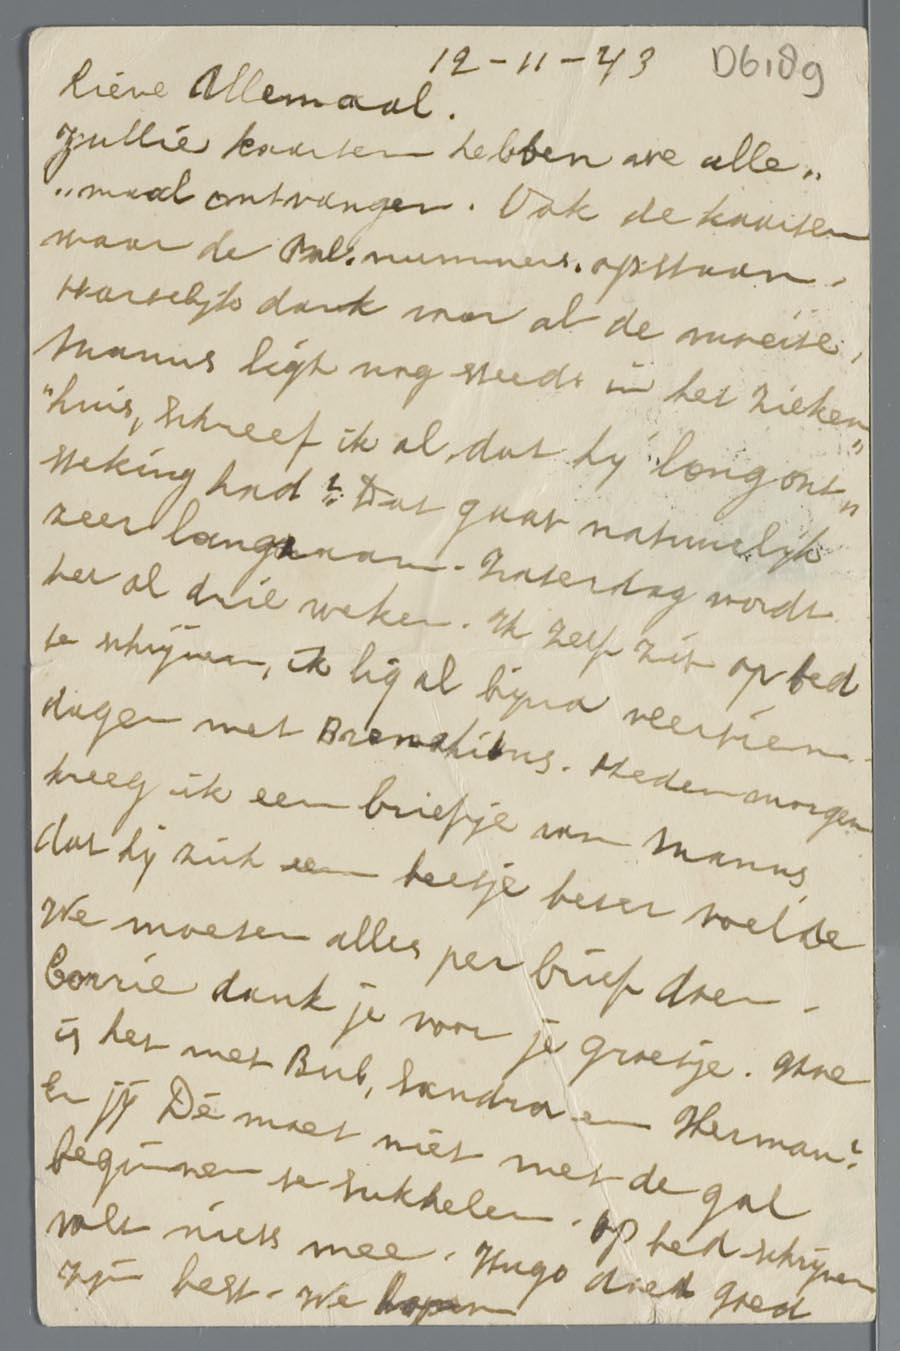 12-11-43 D6189
Lieve Allemaal.
Zullie kaarten hebben we alle„
„maal ontvangen. Ook de kaarten
waar de Pal. nummers. opstaan.
Hartelijk dank voor al de moeite,
Manus ligt nog steeds in het zieken„
"huis, schreef ik al, dat hy longont„
steking had? Dat gaat natuurlijk
zeer langzaam. Zaterdag wordt
het al drie weken. Ik zelf zit op bed
te schrijven, ik lig al bijna veertien
dagen met Bronchitus. Heden morgen
kreeg ik een briefje van Manus,
dat hij zich een beetje beter voelde
We moeten alles per brief doen.
Corrie dank je voor je groetje. Hoe
is het met Bub, Sandra en Herman?
En jij Dé moet niet met de gal
beginnen te sukkelen. Op bed schrijven
valt niets mee. Hugo doet goed
zijn best. We hopen